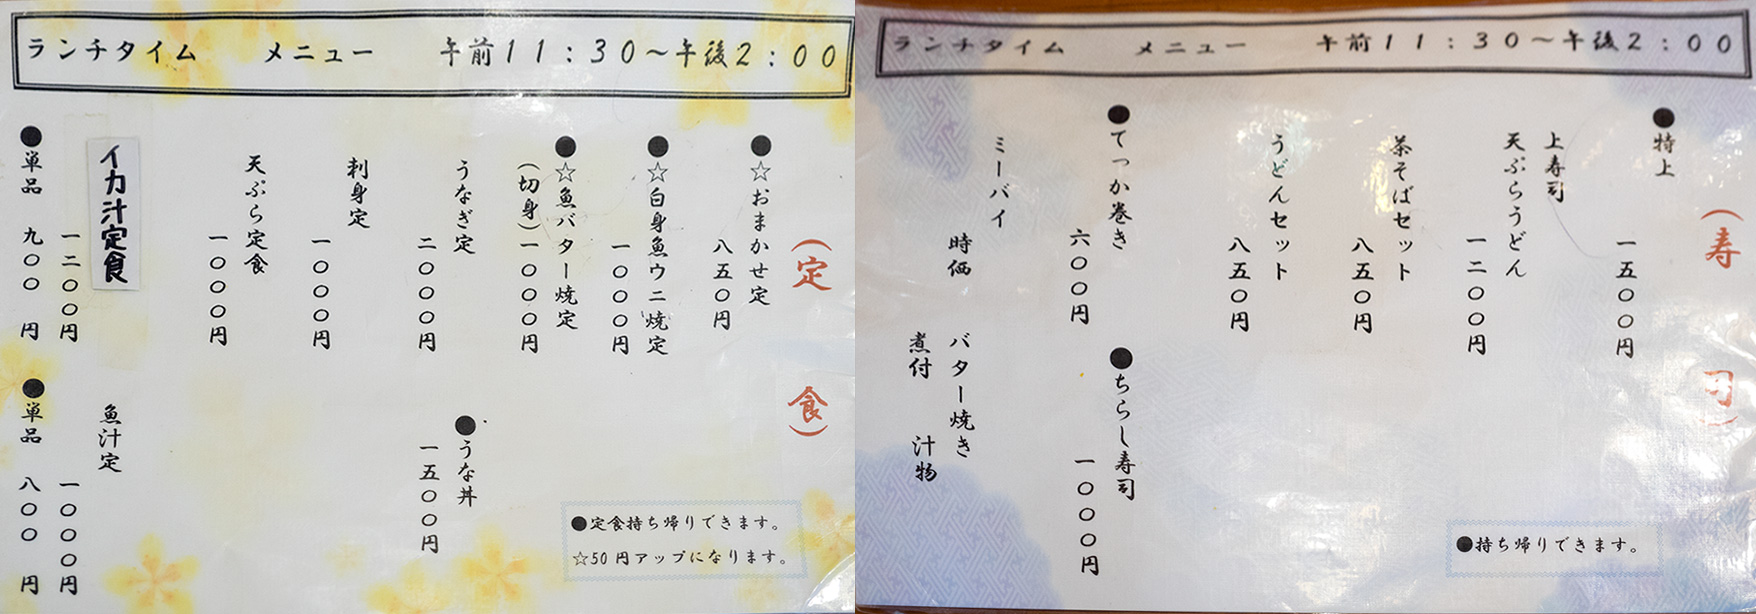 ランチタイム　メニュー　午前11：30～午後2：00
（定食）
●☆おまかせ定
八五〇円
●☆白身魚ウニ焼定
一〇〇〇円
●☆魚バター焼定
（切身）一〇〇〇円
うなぎ定
二〇〇〇円
●うな丼
一五〇〇円
刺身定
一〇〇〇円
天ぷら定食
一〇〇〇円
イカ汁定食
一二〇〇円
●単品　九〇〇　円
魚汁定
一〇〇〇円
●単品　八〇〇　円
●定食持ち帰りできます。
☆50円アップになります。
ランチタイム　メニュー　午前11：30～午後2：00
（寿司）
●特上
一五〇〇円
上寿司
天ぷらうどん
一二〇〇円
茶そばセット
八五〇円
うどんセット
八五〇円
●てっか巻き
六〇〇円
●ちらし寿司
一〇〇〇円
ミーバイ
時価　バター焼き
煮付　汁物
●持ち帰りできます。